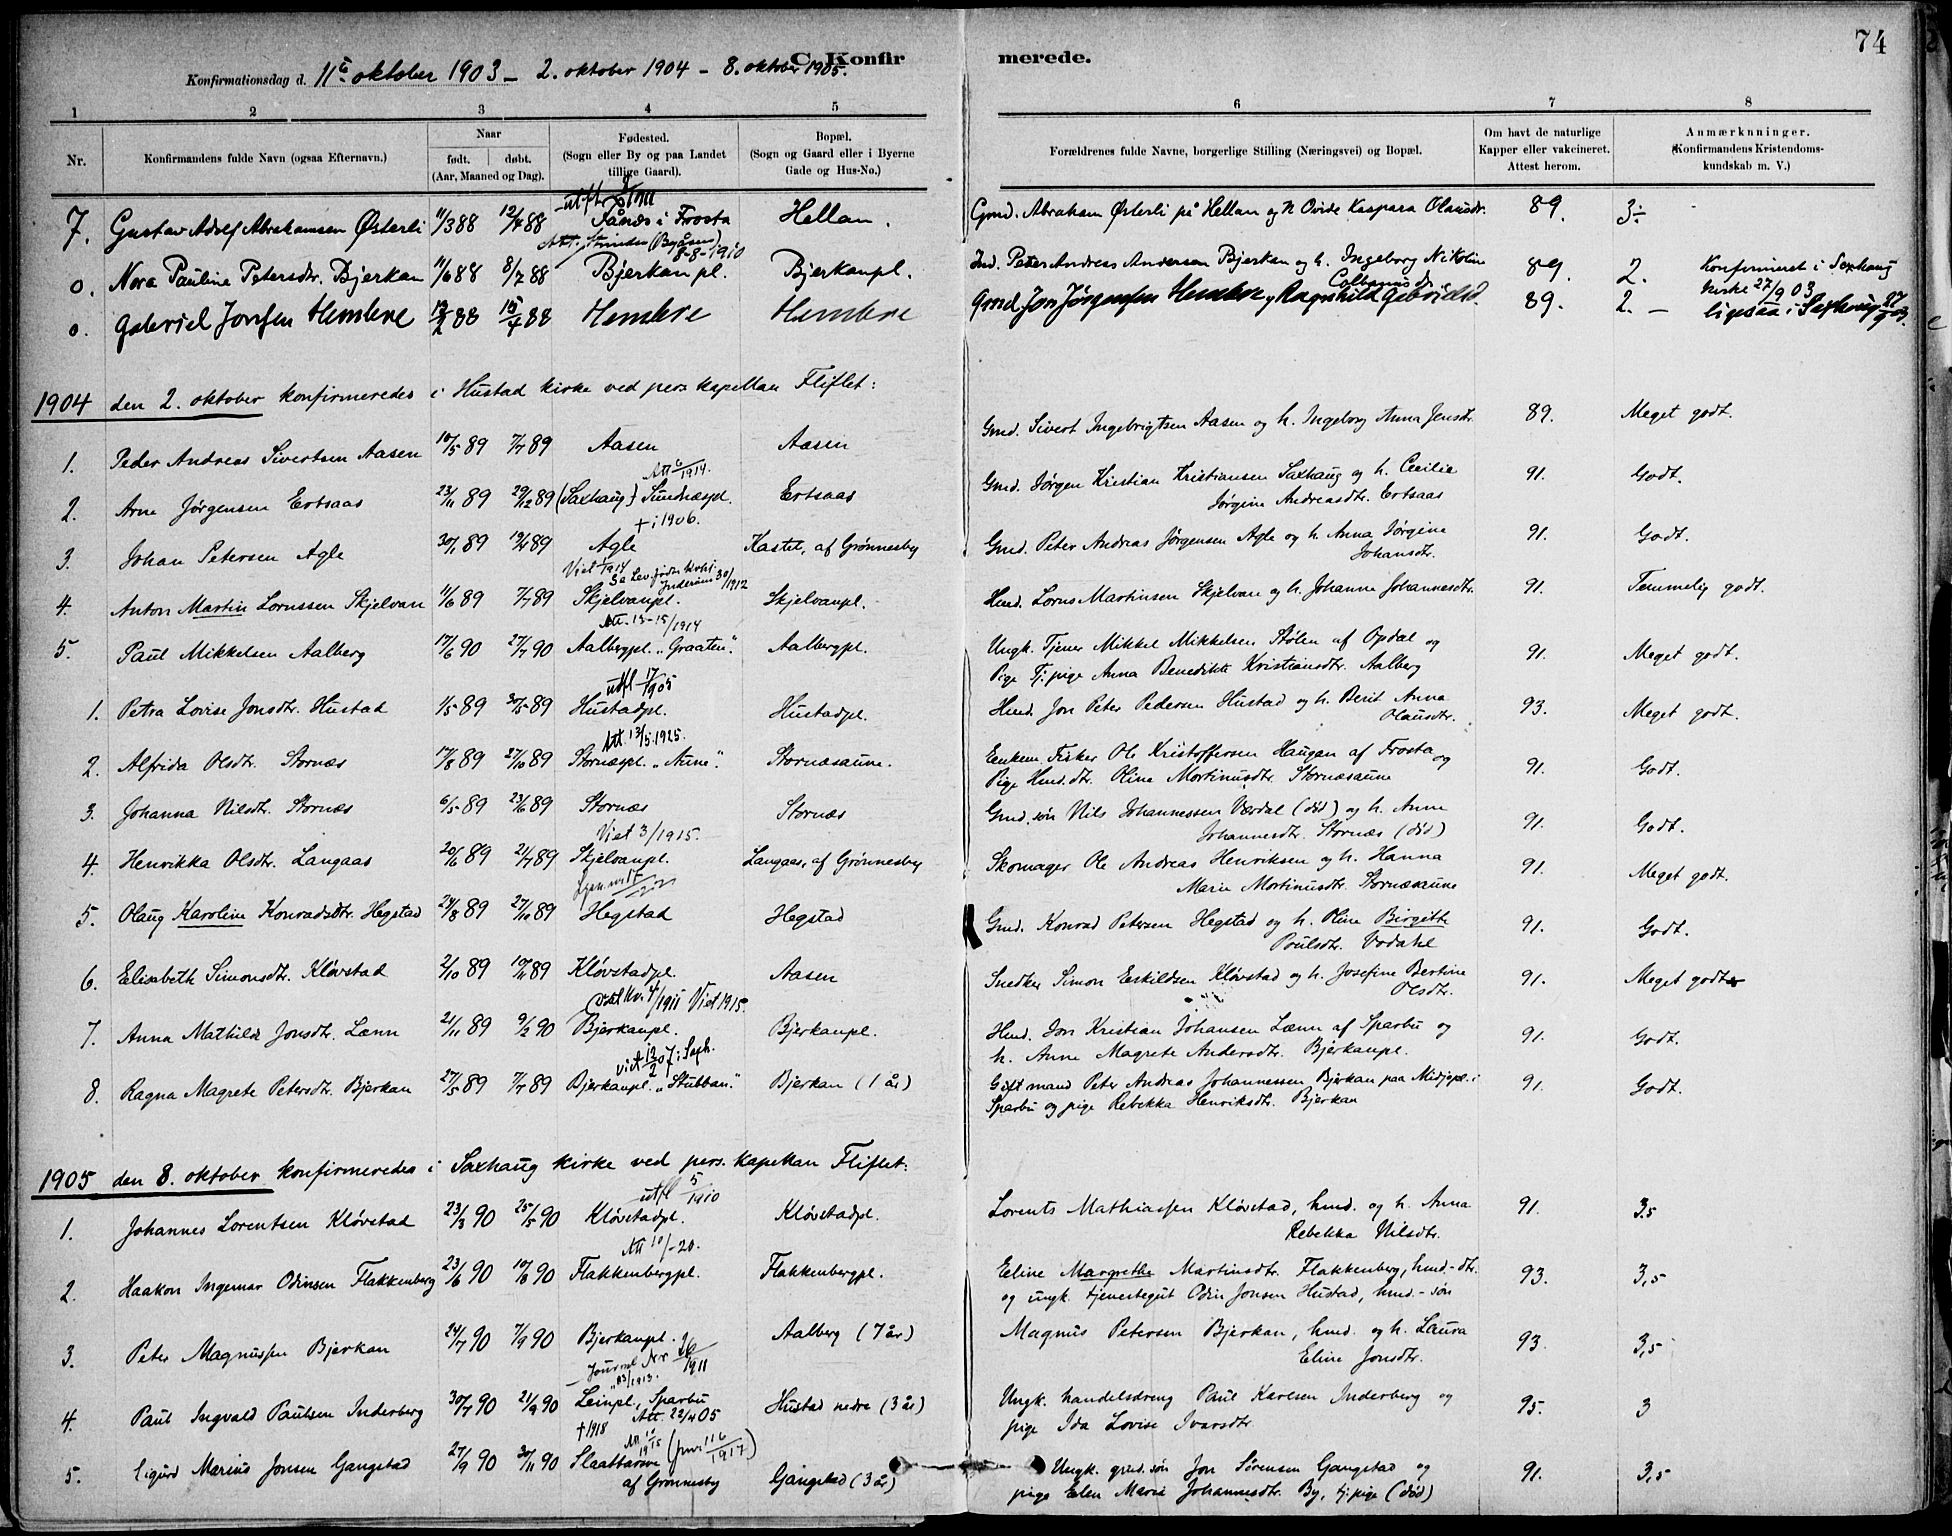 74
C. Konfirmerede.
Konfirmationsdag d. 11te oktober 1903 – 2. oktober 1904 – 8. oktober 1905.
1 2 3 4 5 6 7 8
Nr. Konfirmandens fulde Navn (ogsaa Efternavn.) Naar født. døbt. (Aar, Maaned og Dag). Fødested. (Sogn eller By og paa Landet tillige Gaard). Bopæl. (Sogn og Gaard eller i Byerne Gade og Hus-No.) Forældrenes fulde Navne, borgerlige Stilling (Næringsvei) og Bopæl. Om havt de naturlige Kapper eller vakcineret. Attest herom. Anmærkninger. (Konfirmandens Kristendomskundskab m. V.)
7. Gustav Adolf Abrahamsen Østerli 11/3 88 12/4 88 Fånæs i Frosta Hellan. Gmd. Abraham Østerli på Hellan og h Ovide Kaspara Olausdr. 89. 3÷
Att. Strinden (Byåsen) 8-8-1910
0. Nora Pauline Petersdr. Bjerkan 11/6 88 8/7 88 Bjerkanpl. Bjerkanpl. Ind. Peter Andreas Andersen Bjerkan og h. Ingeborg Nikoline Colbanusdr. 89. 2. Konfirmeret i Saxhaug kirke 27/9 03
0. Gabriel Jonsen Hembre 12/2 88 15/4 88 Hembre Hembre Gmd Jon Jørgensen Hembre og Ragnhild Gabrielsd. 89. 2. – ligesaa i Saxhaug 27/9 03.
1904 den 2. oktober konfirmeredes i Hustad kirke ved pers. kapellan Fliflet:
1. Peder Andreas Sivertsen Aasen 10/5 89 7/7 89 Aasen Aasen Gmd. Sivert Ingebrigtsen Aasen og h. Ingeborg Anna Jensdr. 89. Meget godt.
Att 6/1914.
2. Arne Jørgensen Ertsaas 23/11 89 29/12 89 (Saxhaug) Sundnæspl. Ertsaas Gmd. Jørgen Kristian Kristiansen Saxhaug og h. Cecilie Jørgine Andreasdtr. Ertsaas 91. Godt.
† i 1906.
3. Johan Petersen Agle 30/1 89 19/4 89 Agle Kastel, af Grønnesby Gmd. Peter Andreas Jørgensen Agle og h. Anna Jørgine Johansdtr. 91. Godt.
4. Anton Martin Lornssen Skjelvan 11/6 89 7/7 89 Skjelvanpl. Skjelvanpl. Hmd. Lorns Martinsen Skjelvan og h. Johanna Johannesdtr. 91. Temmelig godt.
Att. 13-15/1914
5. Paul Mikkelsen Aalberg 17/6 90 27/7 90 Aalbergpl. "Graaten". Aalbergpl. Ungk. Tjener Mikkel Mikkelsen Stølen af Opdal og Pige Tj.pige Anna Benedikte Kristiansdtr. Aalberg 91. Meget godt.
utfl 17/1905
1. Petra Lovise Jonsdtr. Hustad 1/5 89 30/5 89 Hustadpl. Hustadpl. Hmd. Jon Peter Pedersen Hustad og h. Berit Anna Olausdtr. 93. Meget godt.
Att. 13/5 1925.
2. Alfrida Olsdtr. Stornæs 17/8 89 27/10 89 Stornæspl. "Aune". Stornæsaune. Enkem. Fisker Ole Kristoffersen Haugan af Frosta og Pige Hmd.dtr. Oline Mortinusdtr Stornæsaune 91. Godt.
3. Johanna Nilsdtr. Stornæs 6/5 89 23/6 89 Stornæs Stornæs Gmd.søn Nils Johannessen Værdal (død) og h. Anne Johannesdtr. Stornæs (død) 91. Godt.
Viet 3/1915.
4. Henrikka Olsdtr. Langaas 20/6 89 21/7 89 Skjelvanpl. Langaas, af Grønnesby Skomager Ole Andreas Henriksen og h. Hanna Marie Mortinusdtr. Stornæsaune 91. Meget godt.
5. Olaug Karoline Konradsdtr. Hegstad 24/8 89 27/10 89 Hegstad Hegstad Gmd. Konrad Petersen Hegstad og h. Oline Birgitte Poulsdtr. Vodahl 91. Godt.
6. Elisabeth Simonsdtr. Kløvstad 2/10 89 10/11 89 Kløvstadpl. Aasen Snedker Simon Eskildsen Kløvstad og h. Josefine Bertine Olsdtr. 91. Meget godt
7. Anna Mathilde Jonsdtr. Lænn 21/11 89 9/2 90 Bjerkanpl. Bjerkanpl. Hmd. Jon Kristian Johansen Lænn af Sparbu og h. Anne Magrete Andersdtr. Bjerkanpl. 91. Godt.
viet 12/2 07 i Saxh.
8. Ragna Magrete Petersdtr. Bjerkan 27/5 89 7/7 89 Bjerkanpl. "Stubban". Bjerkan (1 år) Gift mand Peter Andreas Johannessen Bjerkan paa Midjepl. i Sparbu og pige Rebekka Henriksdtr. Bjerkan 91. Godt.
1905 den 8. oktober konfirmeredes i Saxhaug kirke ved pers. kapellan Fliflet:
utfl 5/1910
1. Johannes Lorentsen Kløvstad 23/3 90 25/5 90 Kløvstadpl. Kløvstadpl. Lorents Mathiassen Kløvstad, hmd. og h. Anna Rebekka Nilsdtr. 91. 3.5
Att 10/-20.
2. Haakon Ingemar Odinsen Flakkenberg 23/6 90 10/8 90 Flakkenbergpl. Flakkenbergpl. Eline Margrethe Martinsdtr. Flakkenberg, hmd.-dtr. og ungk. tjenestegut Odin Jonsen Hustad, hmd.-søn 93. 3,5
3. Peter Magnussen Bjerkan 24/7 90 7/9 90 Bjerkanpl. Aalberg (7 år) Magnus Petersen Bjerkan, hmd. og h. Laura Eline Jonsdtr. 93. 3,5
Journal Nr 26/1911
4. Paul Ingvald Paulsen Inderberg 30/7 90 21/9 90 Leinpl., Sparbu Hustad nedre (3 år) Ungk. handelsdreng Paul Karlsen Inderberg og pige Ida Lovise Ivarsdtr 95. 3
Att. 22/4 05
† 1918
5. Sigurd Marius Jonsen Gangstad 27/9 90 30/11 90 Slaattarøve af Grønnesby Gangstad (3 år) Ungk. gmd.søn Jon Sørensen Gangstad og pige Elen Maria Johannesdtr. By, tj.pige (død) 91. 3,5